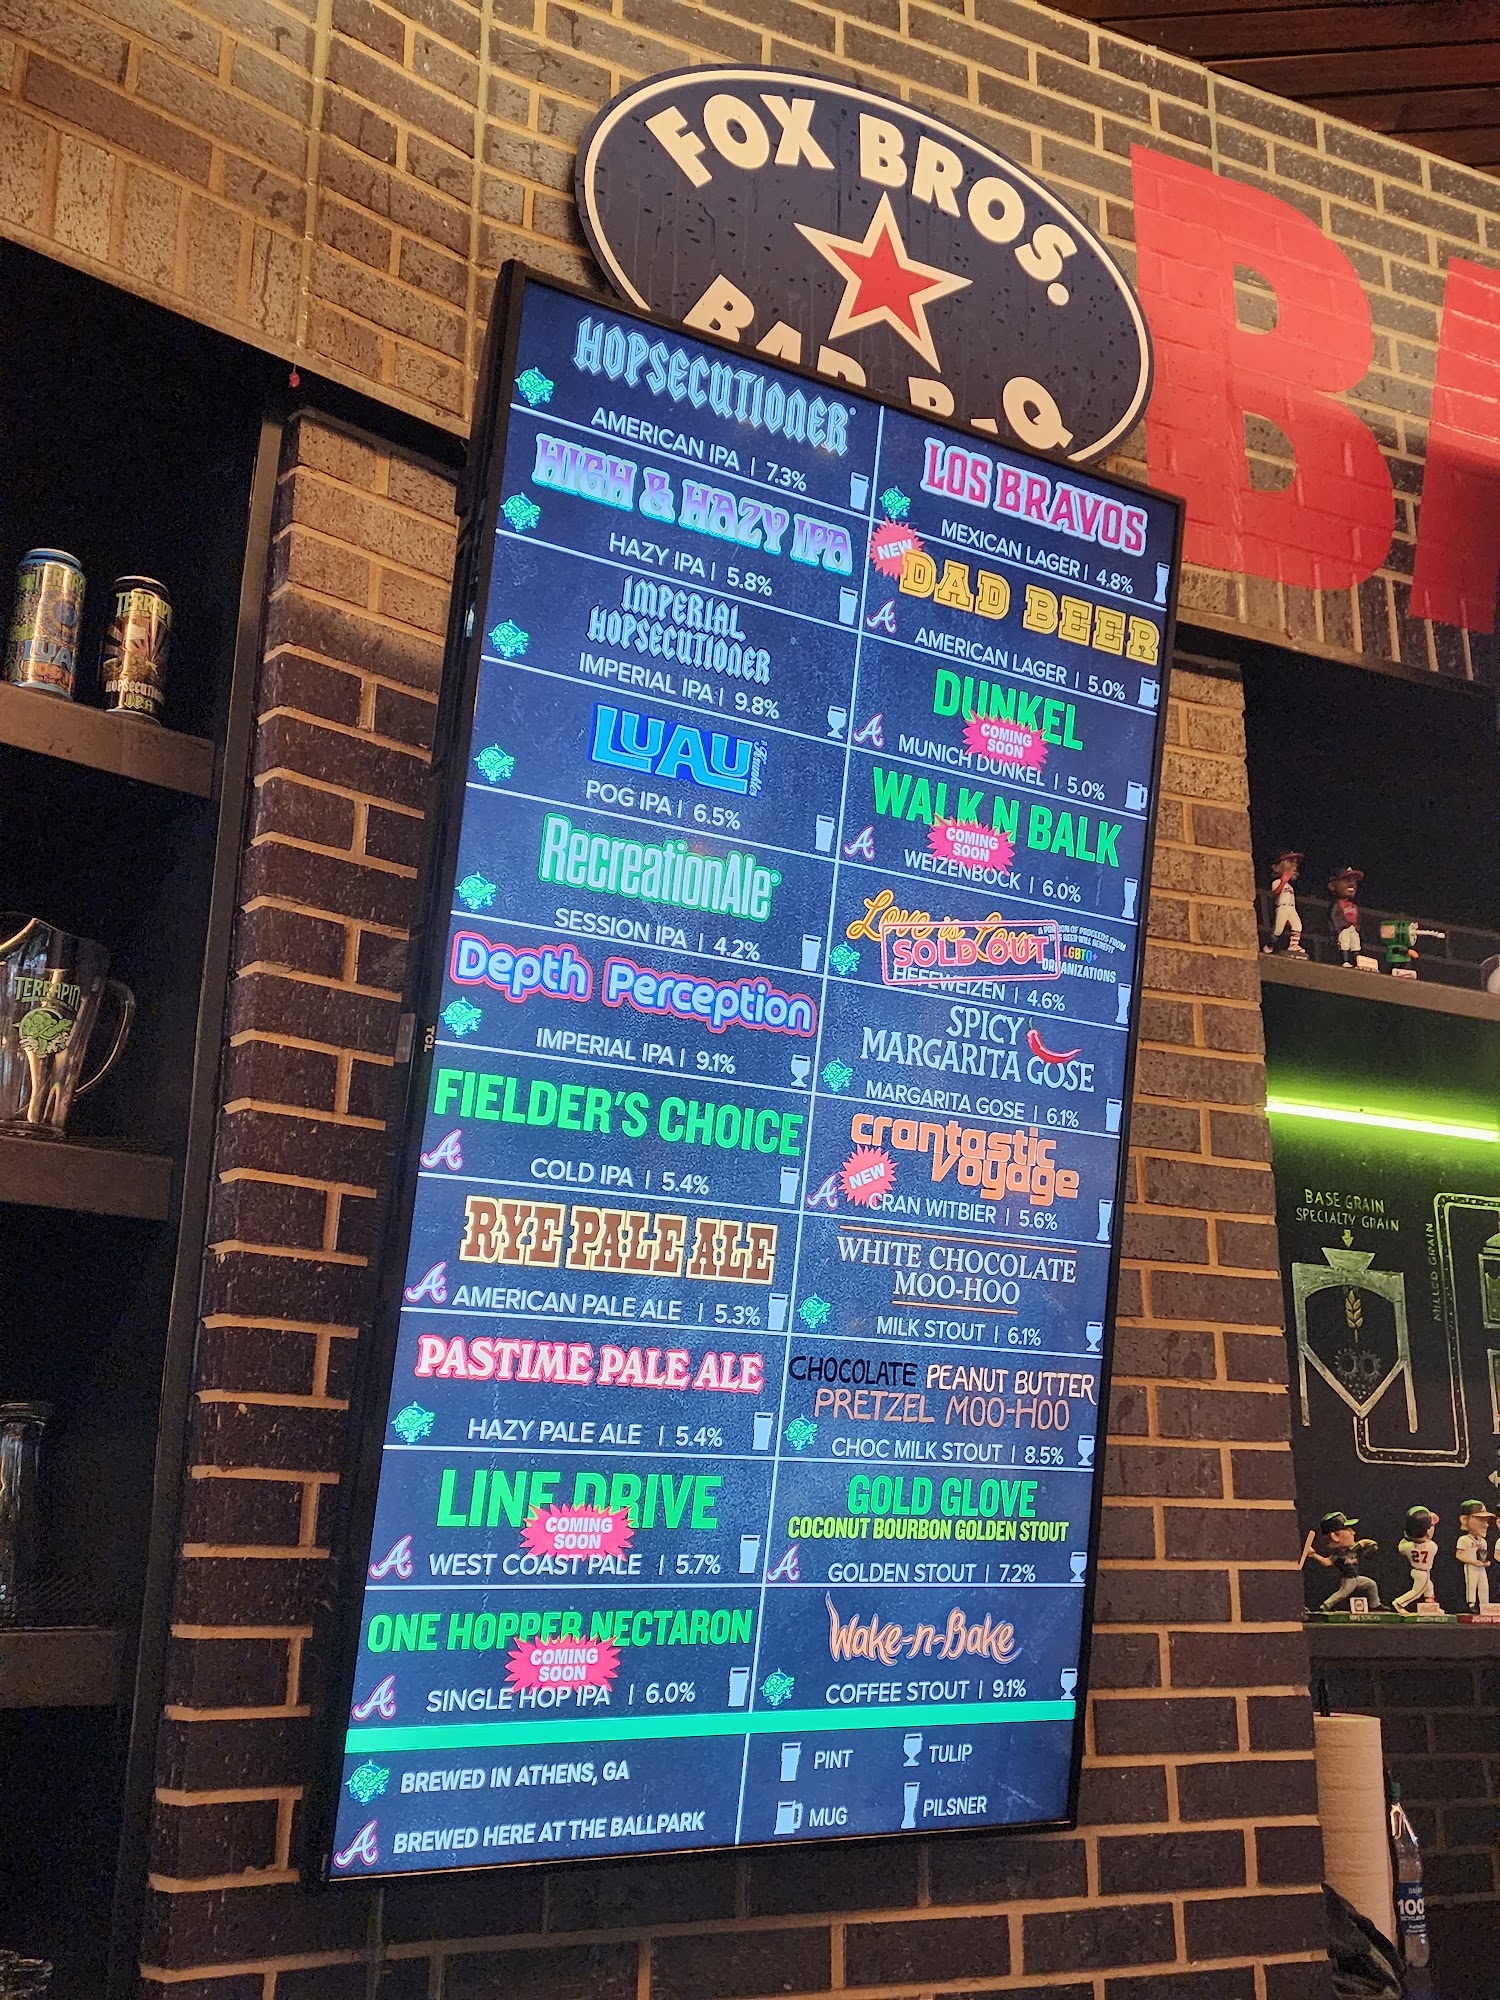 FOX BROS.
BAR-B-Q
HOPSECUTIONER
AMERICAN IPA | 7.3%
HIGH & HAZY IPA
HAZY IPA | 5.8%
IMPERIAL
HOPSECUTIONER
IMPERIAL IPA | 9.8%
LUAU
Krunkles
POG IPA | 6.5%
RecreationAle®
SESSION IPA | 4.2%
Depth Perception
IMPERIAL IPA | 9.1%
FIELDER'S CHOICE
A
COLD IPA | 5.4%
RYE PALE ALE
A
AMERICAN PALE ALE | 5.3%
PASTIME PALE ALE
HAZY PALE ALE | 5.4%
LINE DRIVE
COMING
SOON
A
WEST COAST PALE | 5.7%
ONE HOPPER NECTARON
COMING
SOON
A
SINGLE HOP IPA | 6.0%
LOS BRAVOS
MEXICAN LAGER | 4.8%
NEW
DAD BEER
A
AMERICAN LAGER | 5.0%
DUNKEL
COMING
SOON
A
MUNICH DUNKEL | 5.0%
WALK N BALK
COMING
SOON
A
WEIZENBOCK | 6.0%
Love is Love
SOLD OUT
A PORTION OF PROCEEDS FROM
THIS BEER WILL BENEFIT
LGBTQ+
ORGANIZATIONS
HEFEWEIZEN | 4.6%
SPICY
MARGARITA GOSE
MARGARITA GOSE | 6.1%
crantastic
voyage
NEW
A
CRAN WITBIER | 5.6%
WHITE CHOCOLATE
MOO-HOO
MILK STOUT | 6.1%
CHOCOLATE PEANUT BUTTER
PRETZEL MOO-HOO
CHOC MILK STOUT | 8.5%
GOLD GLOVE
COCONUT BOURBON GOLDEN STOUT
A
GOLDEN STOUT | 7.2%
Wake-n-Bake
COFFEE STOUT | 9.1%
BREWED IN ATHENS, GA
A
BREWED HERE AT THE BALLPARK
PINT
TULIP
MUG
PILSNER
TCL
B
TERRAPIN
LUAU
TERRAPIN
HOPSECUTIONER
IPA
TERRAPIN
BASE GRAIN
SPECIALTY GRAIN
MILLED GRAIN
27
100